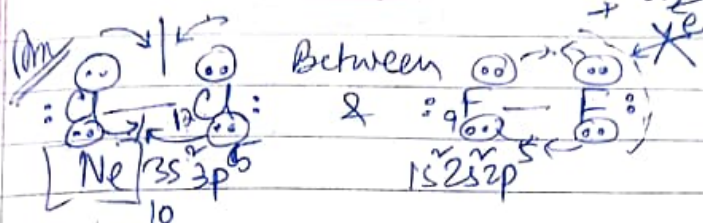 Ans
:Cl — 17Cl: Between & :9F — F:
[Ne] 3s² 3p⁵ 1s²2s²2p⁵
10